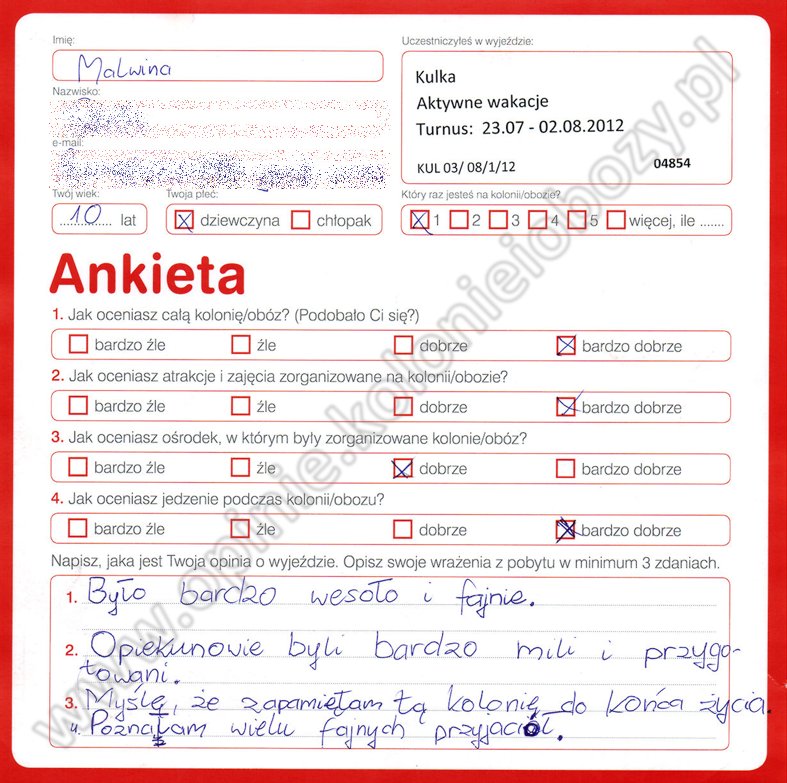 Imię:
Malwina
Nazwisko:
e-mail:
Uczestniczyłeś w wyjeździe:
Kulka
Aktywne wakacje
Turnus: 23.07 - 02.08.2012
KUL 03/ 08/1/12 04854
Twój wiek:
10 lat
Twoja płeć:
dziewczyna chłopak
Który raz jesteś na kolonii/obozie?
1 2 3 4 5 więcej, ile .......
Ankieta
1. Jak oceniasz całą kolonię/obóz? (Podobało Ci się?)
bardzo źle źle dobrze bardzo dobrze
2. Jak oceniasz atrakcje i zajęcia zorganizowane na kolonii/obozie?
bardzo źle źle dobrze bardzo dobrze
3. Jak oceniasz ośrodek, w którym były zorganizowane kolonie/obóz?
bardzo źle źle dobrze bardzo dobrze
4. Jak oceniasz jedzenie podczas kolonii/obozu?
bardzo źle źle dobrze bardzo dobrze
Napisz, jaka jest Twoja opinia o wyjeździe. Opisz swoje wrażenia z pobytu w minimum 3 zdaniach.
1. Było bardzo wesoło i fajnie.
2. Opiekunowie byli bardzo mili i przygo-
towani.
3. Myślę, że zapamiętam tą kolonię do końca życia.
4. Poznałam wielu fajnych przyjaciół.
www.opinie.kolonieiobozy.pl